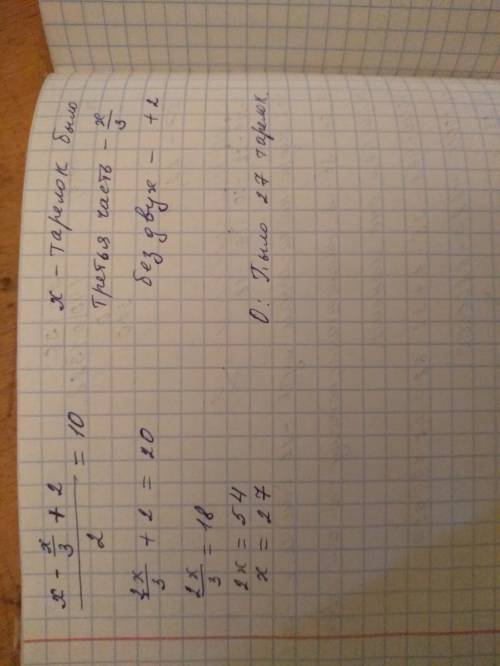 x - x/3 + 2
――――― = 10
2
2x/3 + 2 = 20
2x/3 = 18
2x = 54
x = 27
x - тарелок было
третья часть - x/3
без двух - +2
О: Было 27 тарелок.